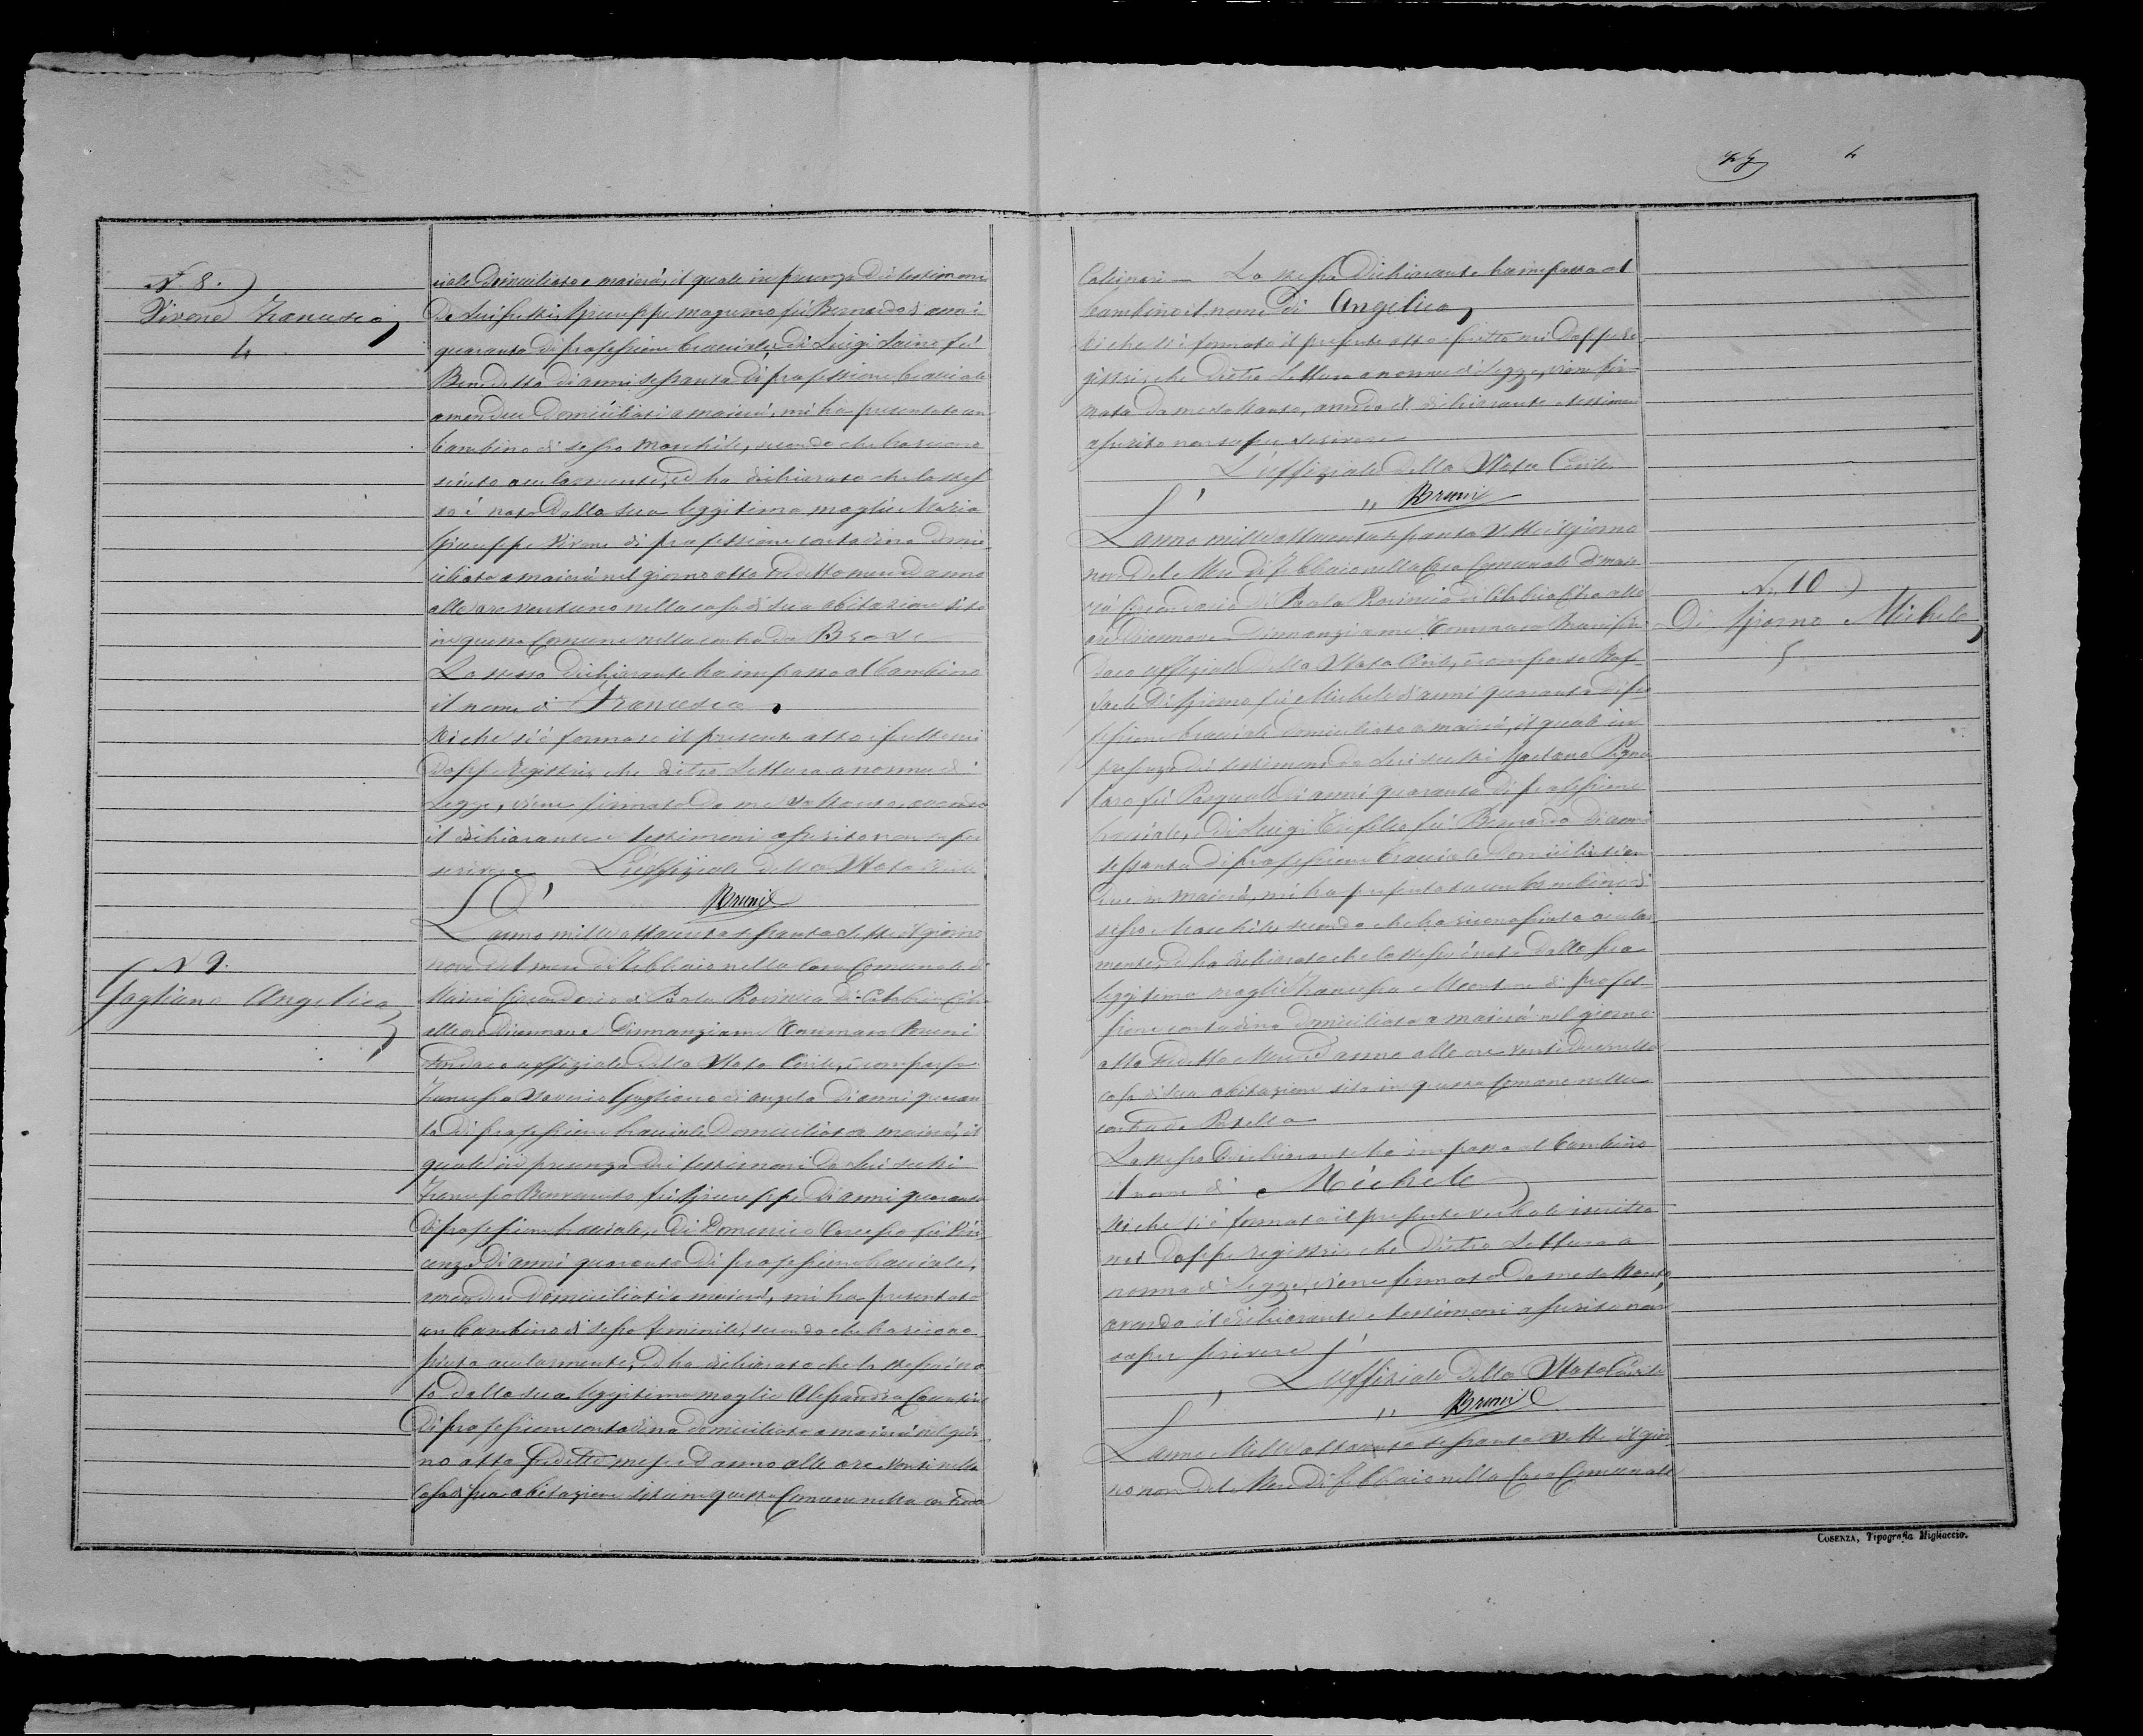 4
N. 8.
Vivone Francesco
4
ciale domiciliato a maierà, il quale in presenza dei testimoni
da lui scelti, Giuseppe magurno fù Bernardo di anni
quaranta di professione bracciale, e di Luigi Laino fù
Benedetto di anni sessanta di professione bracciale
amendue domiciliati a maierà, mi ha presentato un
bambino di sesso maschile, secondo che ha ricono
sciuto ocularmente, ed ha dichiarato che lo stes
so è nato dalla sua leggitima moglie Maria
Giuseppe Vivone di professione contadina domi
ciliata a maierà nel giorno otto sudetto mese ed anno
alle ore ventuno nella casa di sua abitazione sita
in questo Comune nella contrada
Lo stesso dichiarante ha imposto al bambino
il nome di Francesco.
Di che si è formato il presente atto iscritto nei
doppi registri, che dietro lettura a norma di
Legge, viene firmato da me soltanto, avendo
il dichiarante e testimoni asserito non saper
scrivere L'uffiziale dello Stato Civile
Bruni
N 9.
Gagliano Angelica
5
L'anno milleottocentosessantasette il giorno
nove del mese di Febbraio nella Casa Comunale di
Maierà Circondario di Paola Provincia di Calabria Citra
alle ore diecinnove Dinnanzi a me Tommaso Bruni
Sindaco uffiziale dello Stato Civile, è comparso
Francesco Saverio Gagliano di Angelo di anni quaran
ta di professione bracciale domiciliato a maierà, il
quale in presenza dei testimoni da lui scelti
Francesco Benvenuto fù Giuseppe di anni quaranta
di professione bracciale, e di Domenico fù Vin
cenzo di anni quaranta di professione bracciale,
amendue domiciliati a maierà, mi ha presentato
un bambino di sesso feminile, secondo che ha ricono
sciuto ocularmente, ed ha dichiarato che lo stesso è na
to dalla sua leggitima moglie Alessandra
di professione contadina domiciliata a maierà nel gior
no otto sudetto mese ed anno alle ore venti nella
casa di sua abitazione sita in questo Comune nella contrada
Calinari — Lo stesso dichiarante ha imposto al
bambino il nome di Angelica
Di che si è formato il presente atto iscritto nei doppi re
gistri, che dietro lettura a norma di Legge, viene fir
mato da me soltanto, avendo il dichiarante e testimoni
asserito non saper scrivere
L'uffiziale dello Stato Civile
" Bruni
N. 10
Di Giorno Michele
5
L'anno milleottocentosessanta sette il giorno
nove del Mese di febbraio nella Casa Comunale di maie
rà Circondario di Paola Provincia di Calabria Citra alle
ore diecinnove Dinnanzi a me Tommaso Bruni Sin
daco uffiziale dello Stato Civile, è comparso Raf
faele Di Giorno fù Michele di anni quaranta di pro
fessione bracciale domiciliato a maierà, il quale in
presenza dei testimoni da lui scelti Gaetano Pigna
taro fù Pasquale di anni quaranta di professione
bracciale, e di Luigi fù Bernardo di anni
sessanta di professione bracciale domiciliati amen
due in maierà, mi ha presentato un bambino di
sesso Maschile, secondo che ha riconosciuto ocular
mente, ed ha dichiarato che lo stesso è nato dalla sua
leggitima moglie Francesca di profes
sione contadina domiciliata a maierà nel giorno
otto sudetto Mese ed anno alle ore ventidue nella
casa di sua abitazione sita in questo Comune nella
contrada
Lo stesso dichiarante ha imposto al bambino
il nome di Michele
Di che si è formato il presente verbale iscritto
nei doppi registri, che dietro lettura a
norma di Legge, viene firmato da me soltanto,
avendo il dichiarante e testimoni asserito non
saper scrivere
L'uffiziale dello Stato Civile
" Bruni
L'anno Milleottocento sessanta sette il gior
no nove del Mese di febbraio nella Casa Comunale
COSENZA, Tipografia Migliaccio.